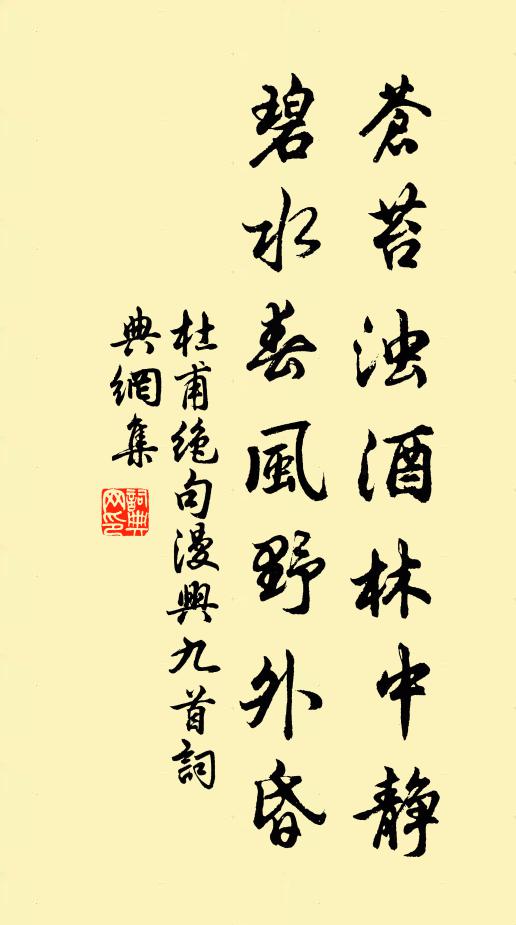 蒼苔浊酒林中靜
碧水春風野外昏
杜甫绝句漫興九首詞
典網集
詞典网印